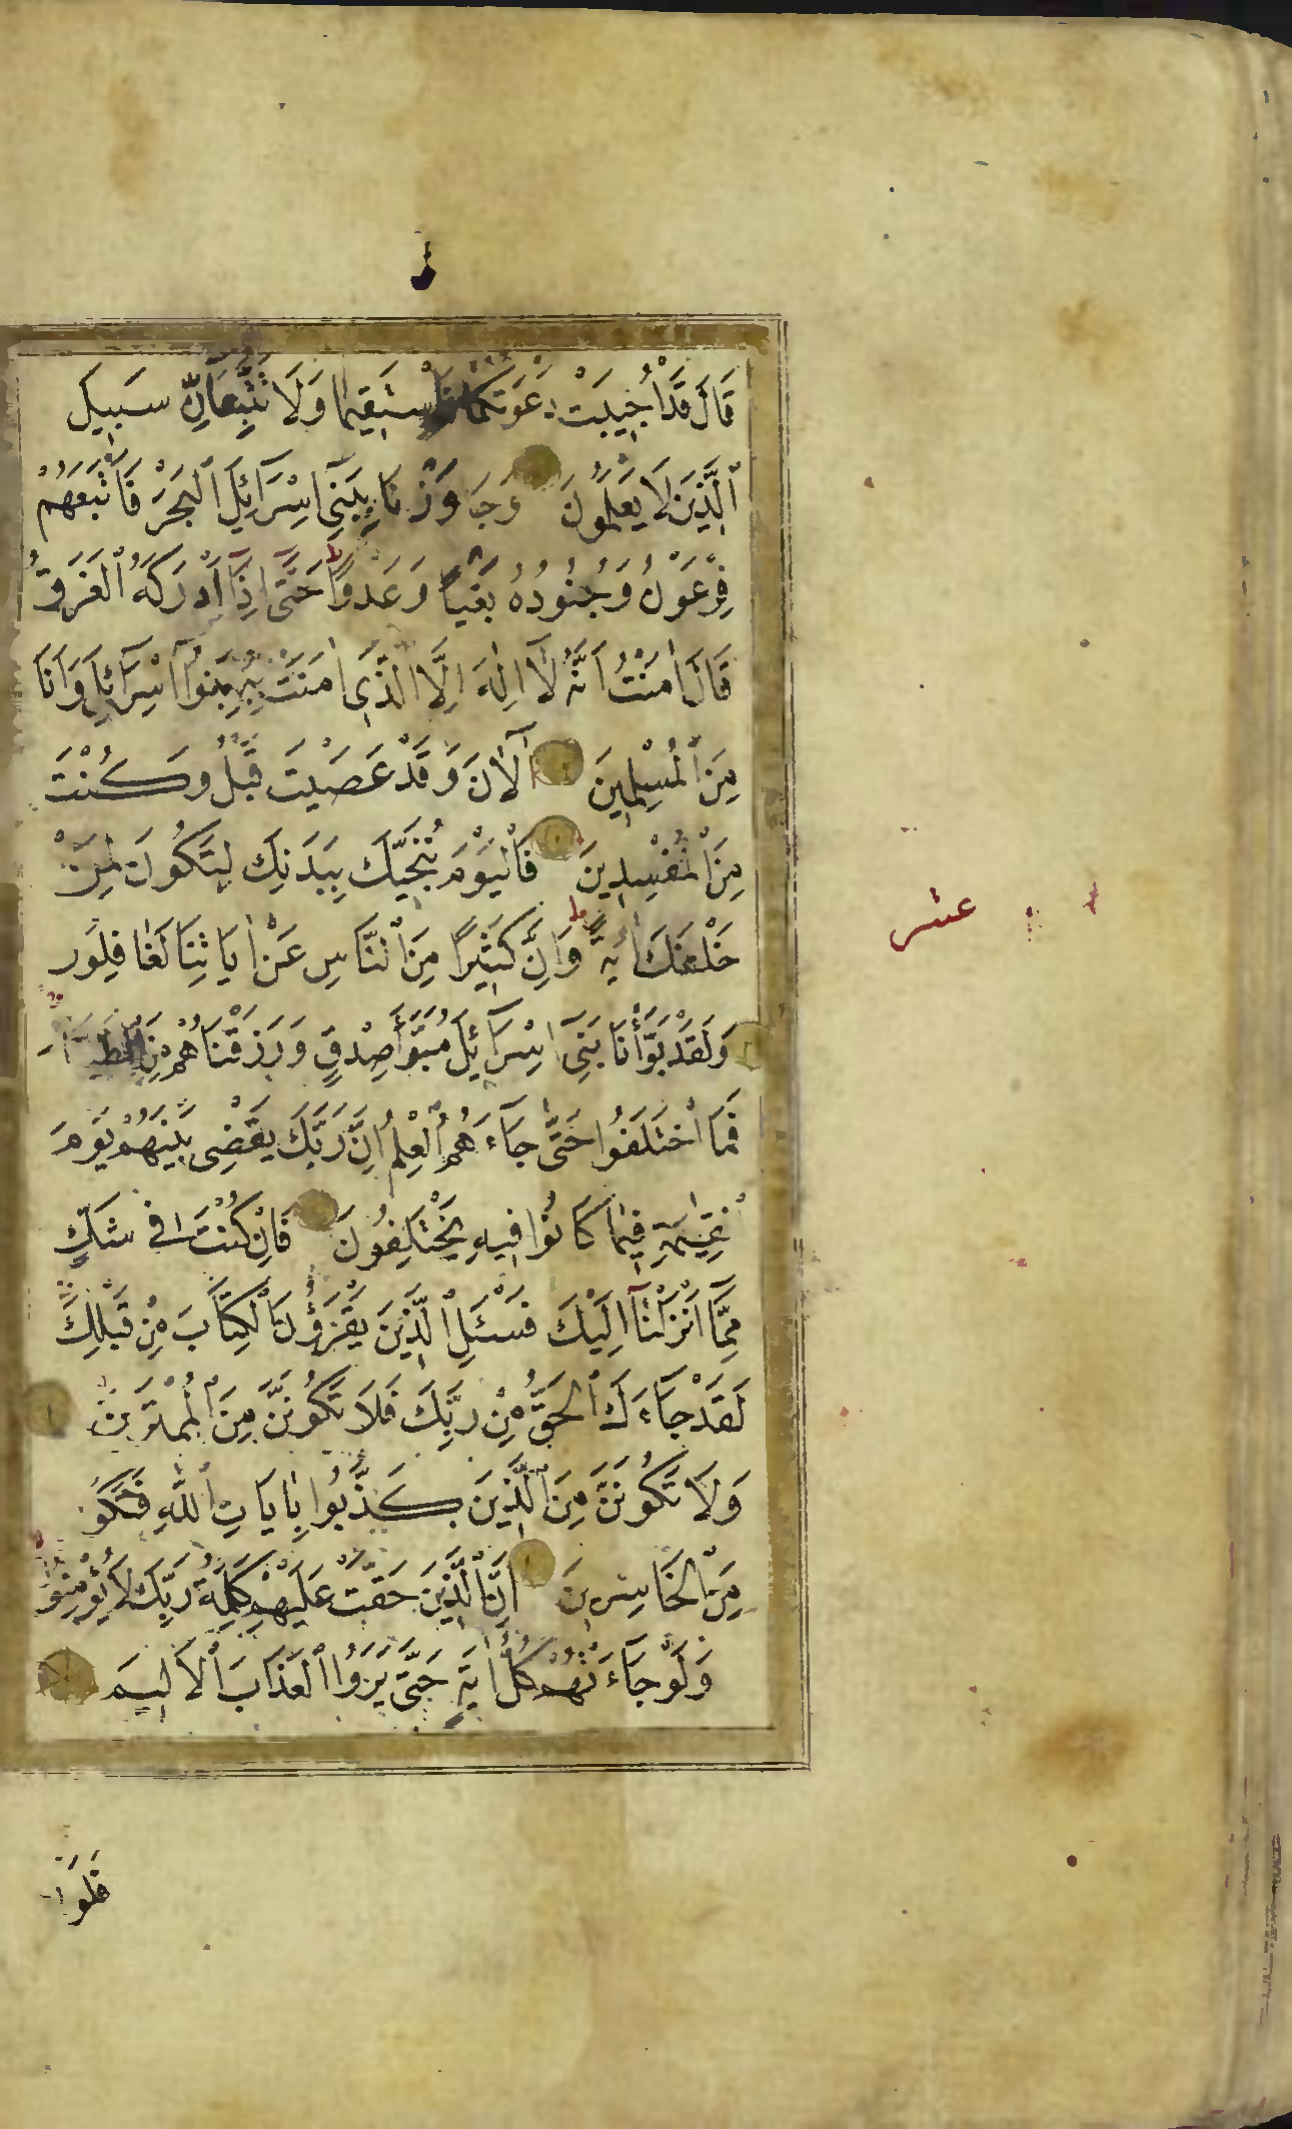 قَالَ قَدْ أُجِيبَتْ دَعْوَتُكُمَا فَاسْتَقِيمَا وَلَا تَتَّبِعَانِّ سَبِيلَ
الَّذِينَ لَا يَعْلَمُونَ وَجَاوَزْنَا بِبَنِي اِسْرَائِلَ الْبَحْرَ فَاَتْبَعَهُمْ
فِرْعَوْنُ وَجُنُودُهُ بَغْيًا وَعَدْوًا حَتَّى اِذَا اَدْرَكَهُ الْغَرَقُ
قَالَ اٰمَنْتُ اَنَّهُ لَا اِلٰهَ اِلَّا الَّذِي اٰمَنَتْ بِهِ بَنُوا اِسْرَائِلَ وَاَنَا
مِنَ الْمُسْلِمِينَ آلْاٰنَ وَقَدْ عَصَيْتَ قَبْلُ وَكُنْتَ
مِنَ الْمُفْسِدِينَ فَالْيَوْمَ نُنَجِّيكَ بِبَدَنِكَ لِتَكُونَ لِمَنْ
خَلْفَكَ اٰيَةً وَاِنَّ كَثِيرًا مِنَ النَّاسِ عَنْ اٰيَاتِنَا لَغَافِلُونَ
وَلَقَدْ بَوَّأْنَا بَنِي اِسْرَائِلَ مُبَوَّأَ صِدْقٍ وَرَزَقْنَاهُمْ مِنَ الطَّيِّبَاتِ
فَمَا اخْتَلَفُوا حَتَّى جَاءَهُمُ الْعِلْمُ اِنَّ رَبَّكَ يَقْضِي بَيْنَهُمْ يَوْمَ
الْقِيٰمَةِ فِيمَا كَانُوا فِيهِ يَخْتَلِفُونَ فَاِنْ كُنْتَ فِي شَكٍّ
مِمَّا اَنْزَلْنَا اِلَيْكَ فَسْئَلِ الَّذِينَ يَقْرَؤُنَ الْكِتَابَ مِنْ قَبْلِكَ
لَقَدْ جَاءَكَ الْحَقُّ مِنْ رَبِّكَ فَلَا تَكُونَنَّ مِنَ الْمُمْتَرِينَ
وَلَا تَكُونَنَّ مِنَ الَّذِينَ كَذَّبُوا بِاٰيَاتِ اللّٰهِ فَتَكُونَ
مِنَ الْخَاسِرِينَ اِنَّ الَّذِينَ حَقَّتْ عَلَيْهِمْ كَلِمَةُ رَبِّكَ لَا يُؤْمِنُونَ
وَلَوْ جَاءَتْهُمْ كُلُّ اٰيَةٍ حَتَّى يَرَوُا الْعَذَابَ الْاَلِيمَ
عشر
فَلَوْلَا